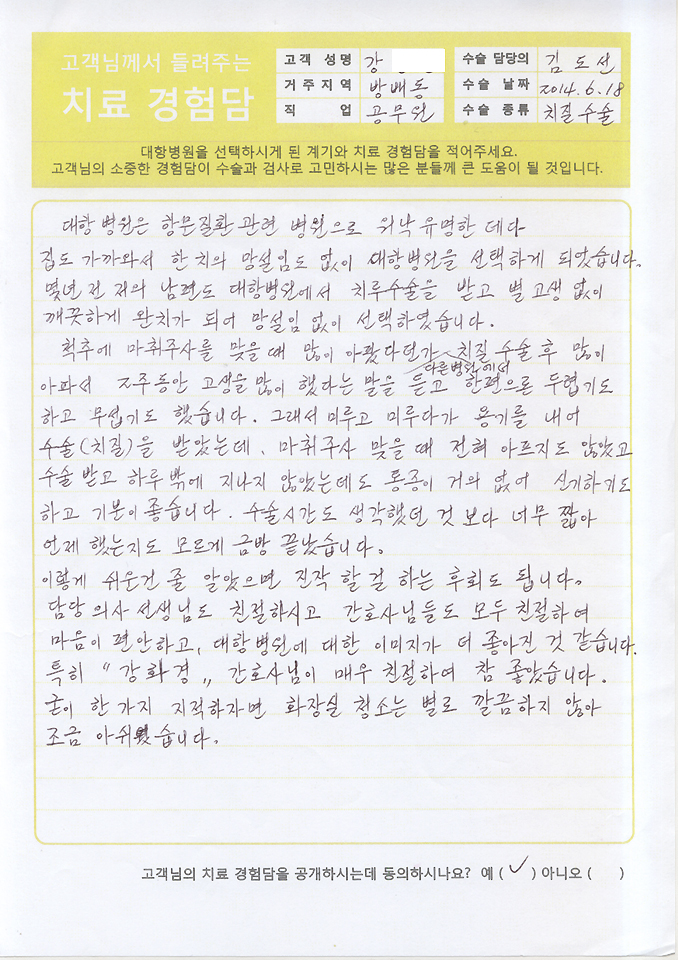 고객님께서 들려주는
치료 경험담
고객 성명 강
거주지역 방배동
직 업 공무원
수술 담당의 김도선
수술 날짜 2014.6.18
수술 종류 치질수술
대항병원을 선택하시게 된 계기와 치료 경험담을 적어주세요.
고객님의 소중한 경험담이 수술과 검사로 고민하시는 많은 분들께 큰 도움이 될 것입니다.
대항병원은 항문질환 관련 병원으로 워낙 유명한 데다
집도 가까와서 한치의 망설임도 없이 대항병원을 선택하게 되었습니다.
몇년전 저의 남편도 대항병원에서 치루수술을 받고 별 고생 없이
깨끗하게 완치가 되어 망설임 없이 선택하였습니다.
척추에 마취주사를 맞을때 많이 아팠다던가 치질 수술 후 많이
다른병원에서
아파서 2주동안 고생을 많이 했다는 말을 듣고 한편으론 두렵기도
하고 무섭기도 했습니다. 그래서 미루고 미루다가 용기를 내어
수술(치질)을 받았는데, 마취주사 맞을 때 전혀 아프지도 않았고
수술 받고 하루밖에 지나지 않았는데도 통증이 거의 없어 신기하기도
하고 기분이 좋습니다. 수술시간도 생각했던 것 보다 너무 짧아
언제 했는지도 모르게 금방 끝났습니다.
이렇게 쉬운건 줄 알았으면 진작 할걸 하는 후회도 됩니다.
담당 의사 선생님도 친절하시고 간호사님들도 모두 친절하여
마음이 편안하고, 대항병원에 대한 이미지가 더 좋아진 것 같습니다.
특히 "강화경" 간호사님이 매우 친절하여 참 좋았습니다.
굳이 한가지 지적하자면 화장실 청소는 별로 깔끔하지 않아
조금 아쉬웠습니다.
고객님의 치료 경험담을 공개하시는데 동의하시나요? 예 (✓) 아니오 ( )